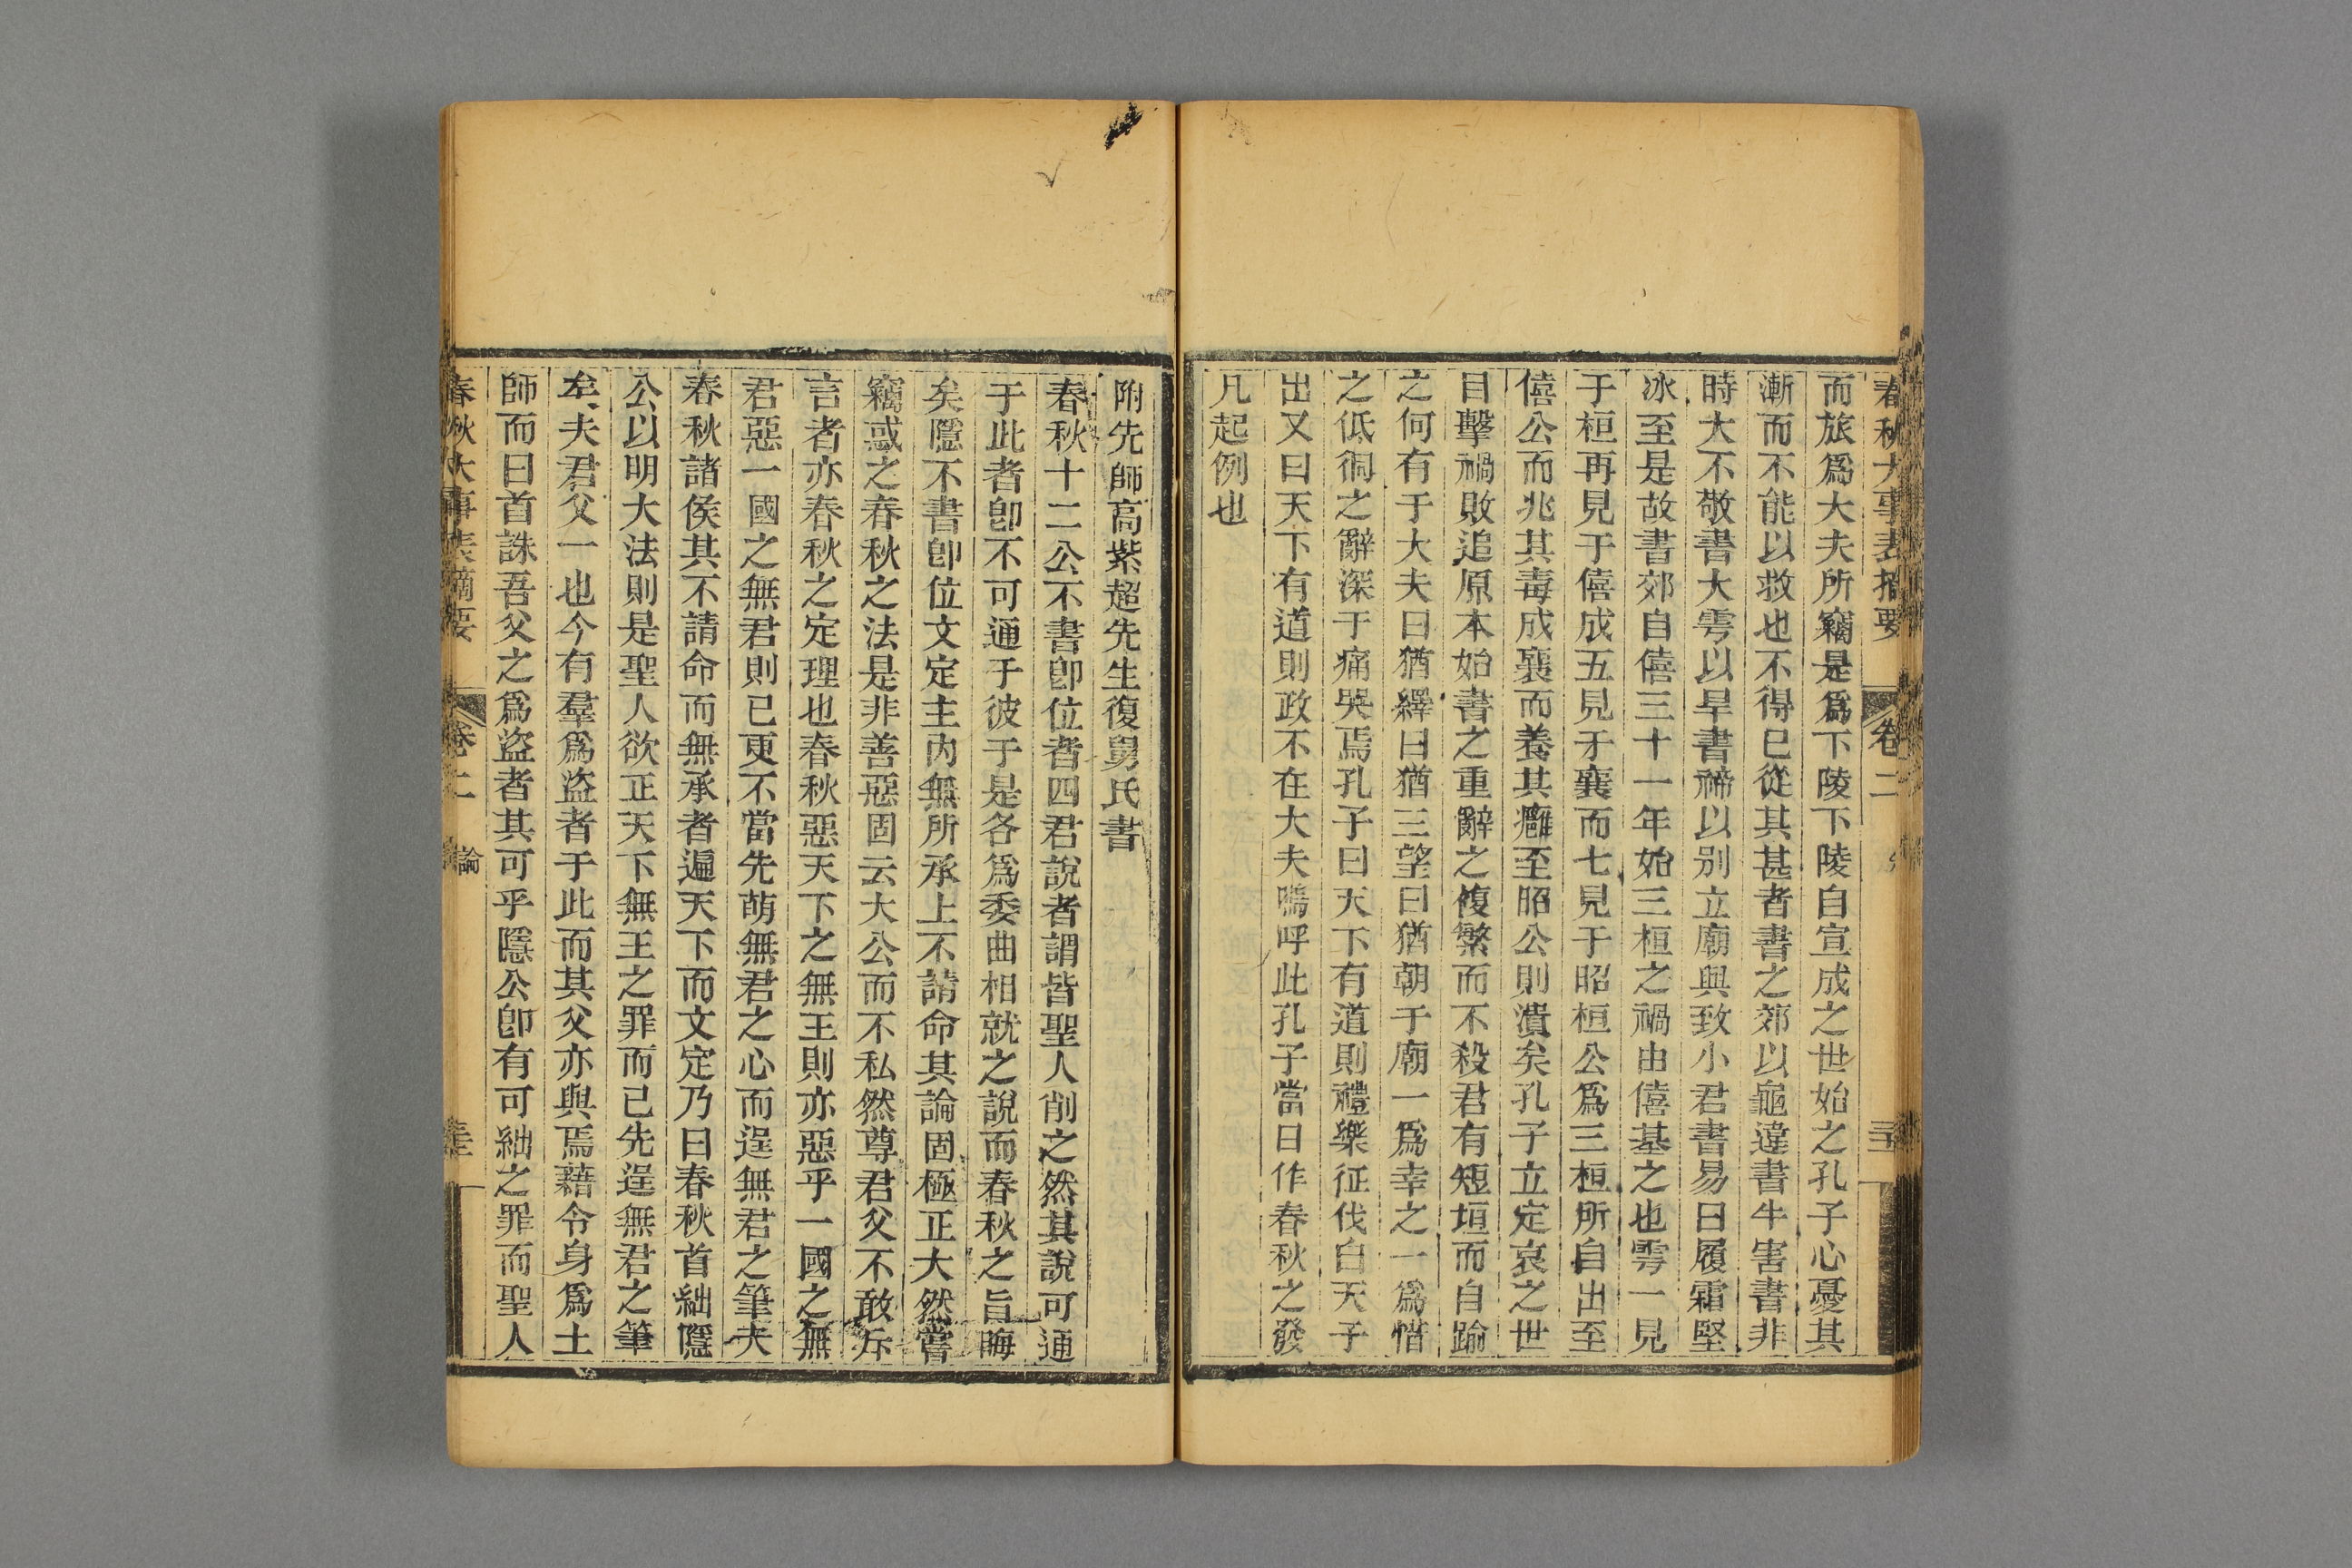 春秋大事表摘要 卷二
而旅爲大夫所竊是爲下陵下陵自宣成之世始之孔子心憂其
漸而不能以救也不得已從其甚者書之郊以龜違書牛害書非
時大不敬書大雩以旱書禘以别立廟與致小君書易曰履霜堅
冰至是故書郊自僖三十一年始三桓之禍由僖基之也雩一見
于桓再見于僖成五見于襄而七見于昭桓公爲三桓所自出至
僖公而兆其毒成襄而養其癰至昭公則潰矣孔子立定哀之世
目擊禍敗追原本始書之重辭之複繁而不殺君有短垣而自踰
之何有于大夫曰猶繹曰猶三望曰猶朝于廟一爲幸之一爲惜
之低徊之辭深于痛哭焉孔子曰天下有道則禮樂征伐自天子
出又曰天下有道則政不在大夫嗚呼此孔子當日作春秋之發
凡起例也
附先師高紫超先生復舅氏書
春秋十二公不書卽位者四君說者謂皆聖人削之然其說可通
于此者卽不可通于彼于是各爲委曲相就之說而春秋之旨晦
矣隱不書卽位文定主內無所承上不請命其論固極正大然嘗
竊惑之春秋之法是非善惡固云大公而不私然尊君父不敢斥
言者亦春秋之定理也春秋惡天下之無王則亦惡乎一國之無
君惡一國之無君則已更不當先萌無君之心而逞無君之筆夫
春秋諸侯其不請命而無承者遍天下而文定乃曰春秋首絀隱
公以明大法則是聖人欲正天下無王之罪而已先逞無君之筆
矣夫君父一也今有羣爲盜者于此而其父亦與焉藉令身爲士
師而曰首誅吾父之爲盜者其可乎隱公卽有可絀之罪而聖人
春秋大事表摘要 卷二 論